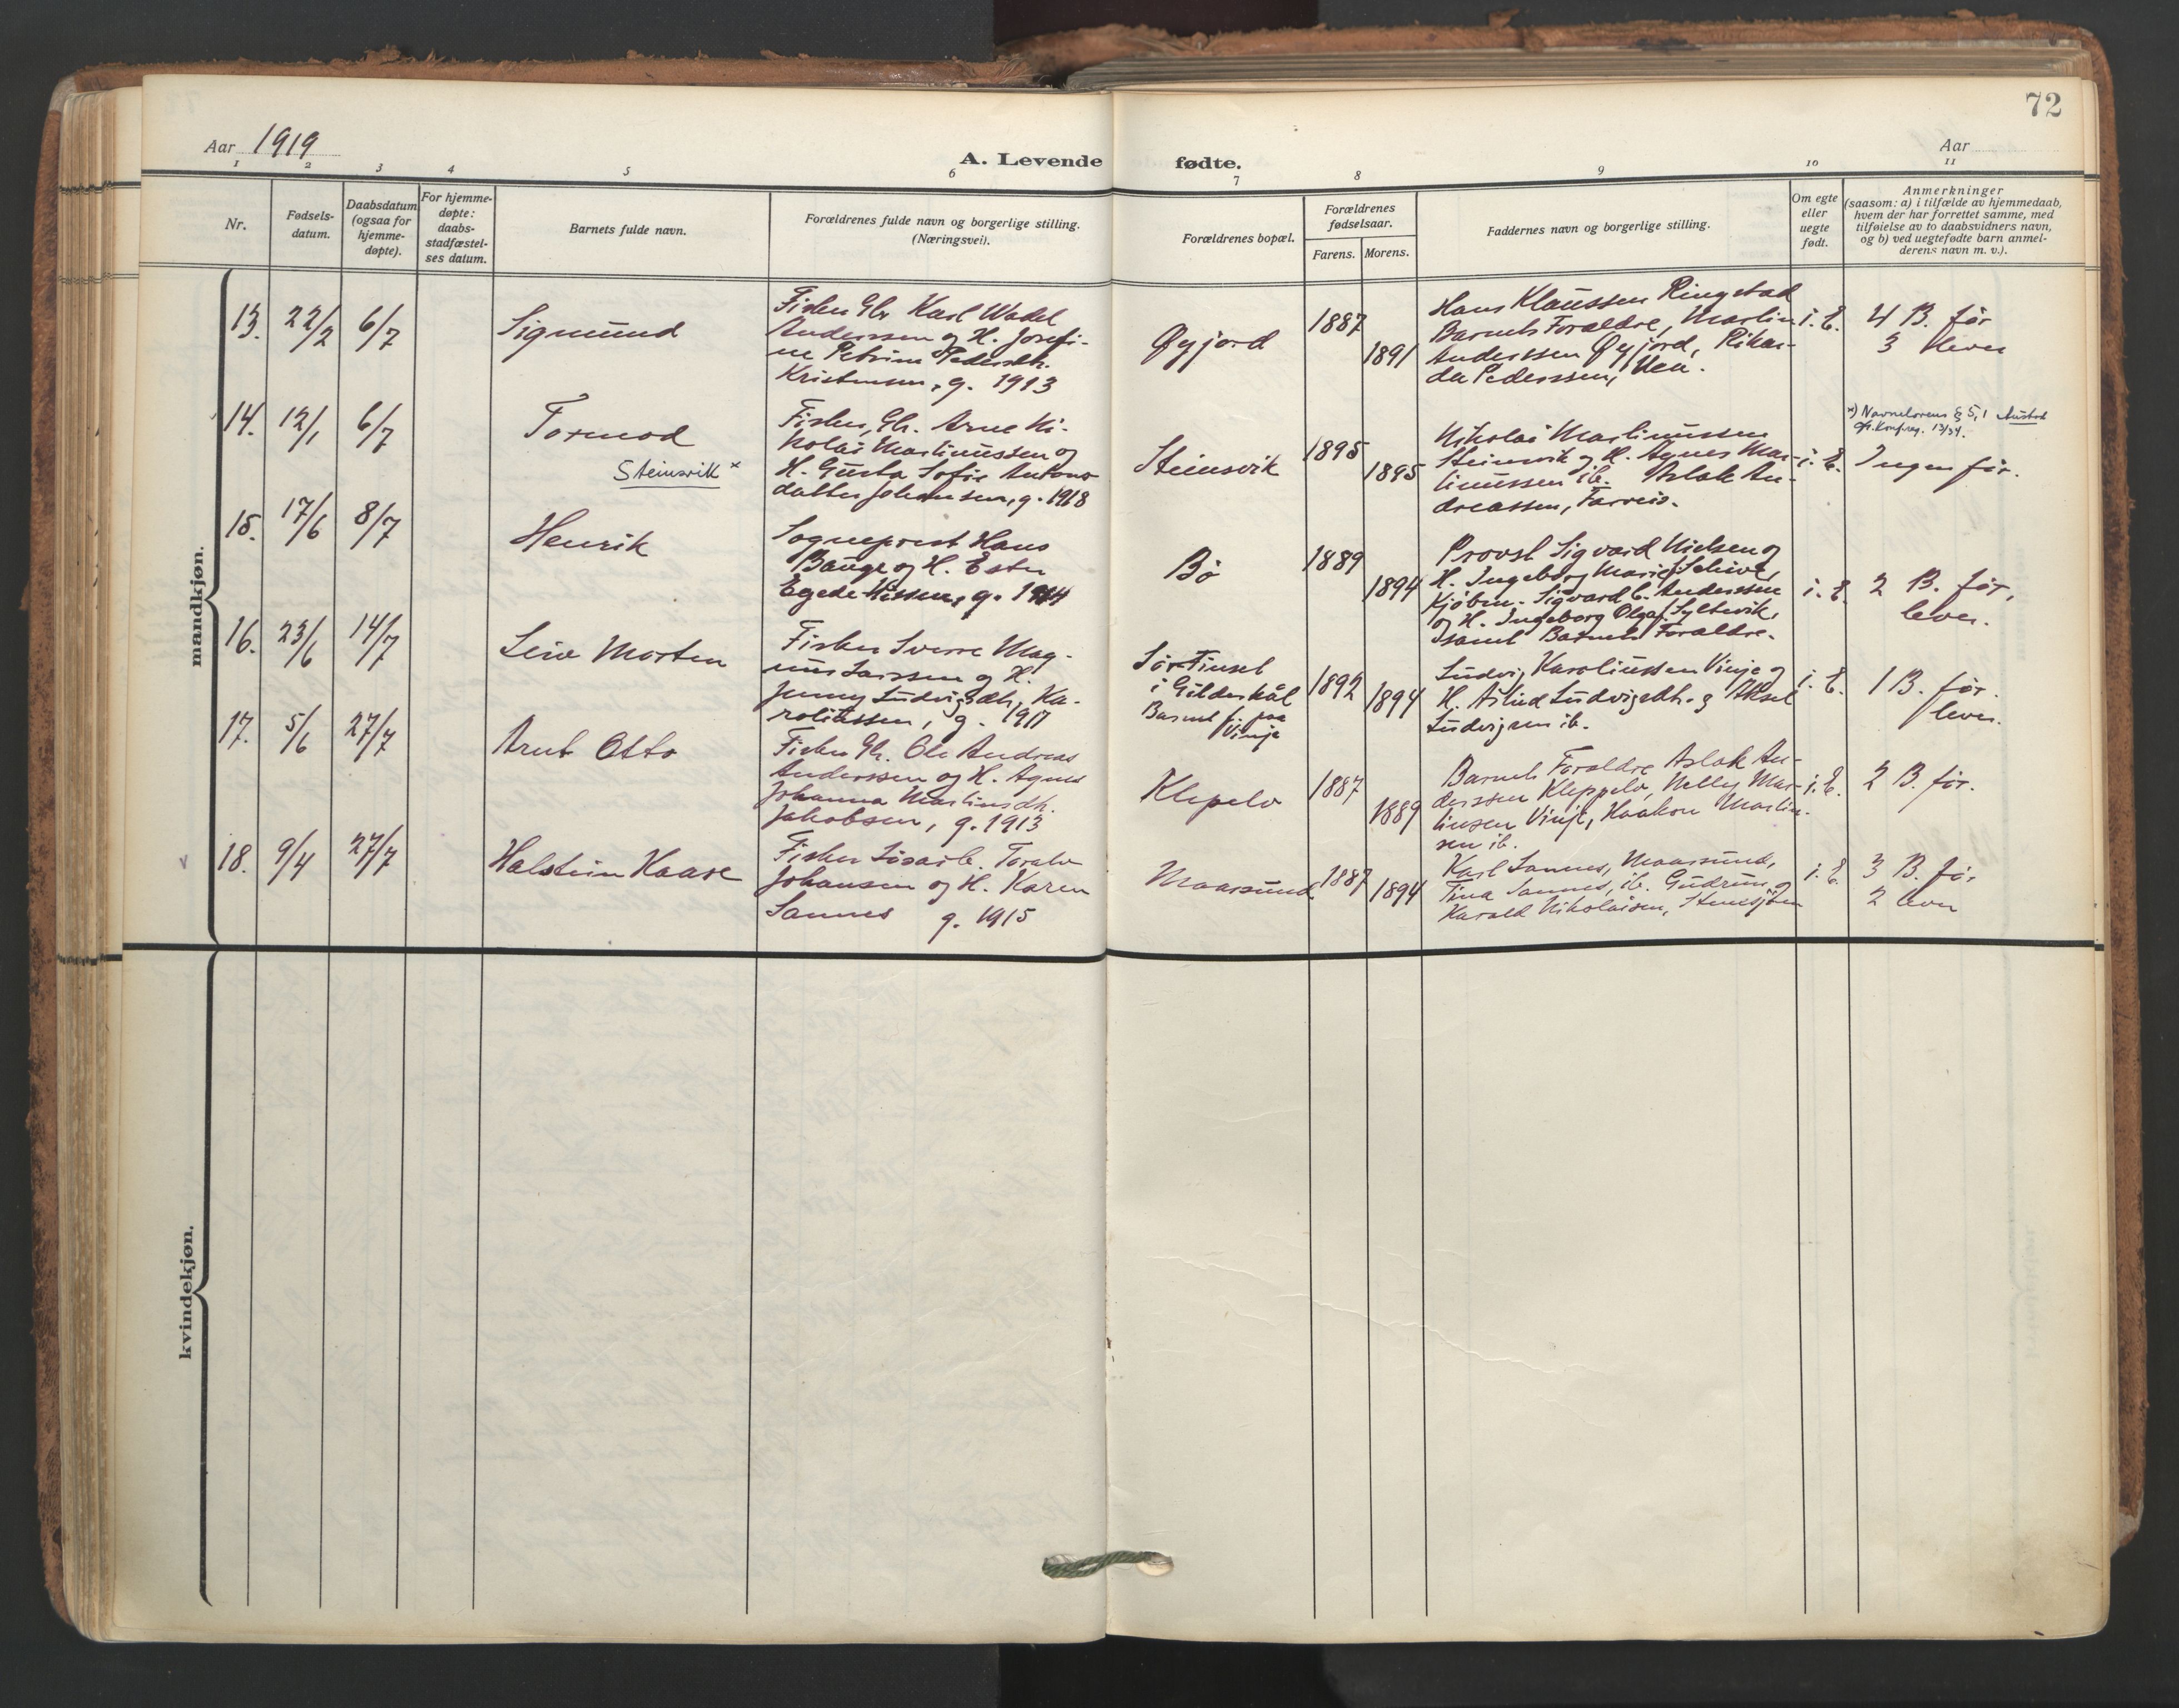 72
Aar 1919
A. Levende fødte.
Aar
1 2 3 4 5 6 7 8 9 10 11
Nr.
Fødsels-
datum.
Daabsdatum
(ogsaa for
hjemme-
døpte).
For hjemme-
døpte:
daabs-
stadfæstel-
ses datum.
Barnets fulde navn.
Forældrenes fulde navn og borgerlige stilling.
(Næringsvei).
Forældrenes bopæl.
Forældrenes
fødselsaar.
Farens. Morens.
Faddernes navn og borgerlige stilling.
Om egte
eller
uegte
født.
Anmerkninger
(saasom: a) i tilfælde av hjemmedaab,
hvem der har forrettet samme, med
tilføielse av to daabsvidners navn,
og b) ved uegtefødte barn anmel-
derens navn m. v.).
mandkjøn.
13. 22/2 6/7
Sigmund
Fisker Gbr Karl Wadel
Anderssen og H. Josefi-
ne Petrine Pedersdtr.
Kristensen, g. 1913
Øyjord
1887
1891
Hans Klaussen Ringstad
Barnets Foraldre, Martin
Anderssen Øyjord, Rikar-
da Pederssen, Uea.
i. E.
4 B. før
3 lever
14. 12/1 6/7
Tormod
Steinsvik x
Fisker, Gbr. Arne Ni-
kolai Martinussen og
H. Gusta Sofie Antons
datter Johansen, g. 1918
Steinsvik
1895
1895
Nikolai Martinussen
Steinsvik og H. Agnes Mar-
tinussen ib. Aslak An-
dreassen,
i. E.
x) Navnelovens § 5,1
cfr. Konfreg. 13/34.
Ingen før.
15. 17/6 8/7
Henrik
Sogneprest Hans
Bauge og H. Ester
Egede-Nissen, g. 1914
Bø
1889
1894
Provst Sigvard Nielsen og
H. Ingeborg Marie
Kjøbm. Sigvard C. Anderssen
og H. Ingeborg Olga f. Syltevik,
samt Barnets Foraldre.
i. E.
2 B. før,
lever.
16. 23/6 14/7
Leiv Morten
Fisker Sverre Mag-
nus Larssen og H.
Jenny Ludvigsdtr. Ka-
roliussen, g. 1917
Sør Finset
i Gildeskål
Barnet f. paa
Vinje
1892
1894
Ludvig Karoliussen Vinje og
H. Astrid Ludvigsdtr. og Aksel
Ludvigsen ib.
i. E.
1 B. før.
lever.
17. 5/6 27/7
Arnt Otto
Fisker Gbr. Ole Andreas
Anderssen og H. Agnes
Johanna Martinsdtr.
Jakobsen, g. 1913
Klepelv
1887
1889
Barnets Foraldre Aslak An-
derssen Kleppelv, Nelly Mar-
tinsen Vinje, Haakon Martin-
sen ib.
i. E.
2 B. før.
18. 9/4 27/7
Halstein Kaare
Fisker Løsarb. Toralv
Johansen og H. Karen
Sannes g. 1915
Maarsund
1887
1894
Karl Sannes, Maarsund,
Tina Sannes, ib. Gudrun og
Harald Nikolaisen, Steinesjøen
i. E.
3 B. før
2 lever
kvindekjøn.